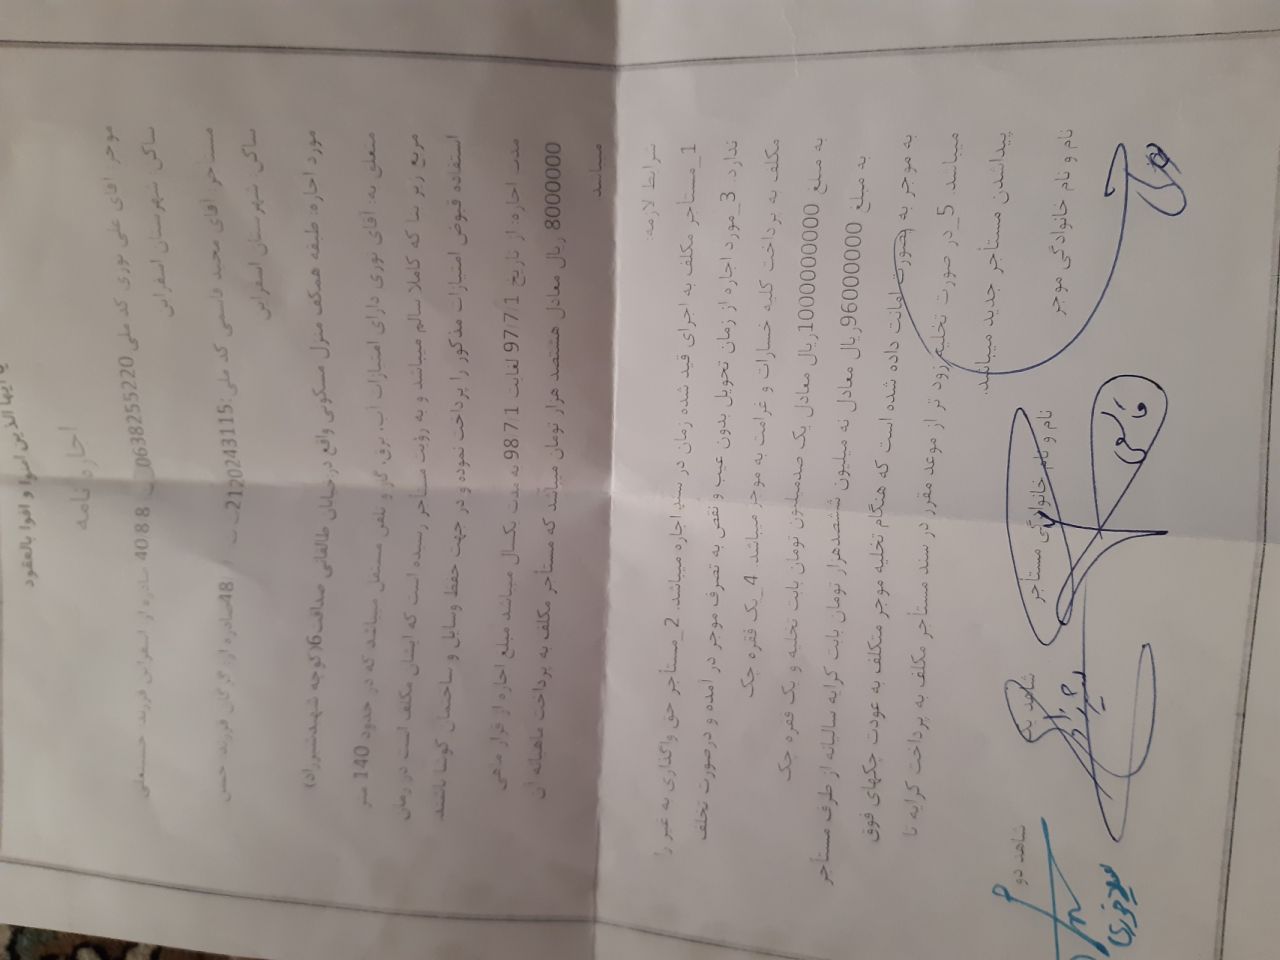 یا ایها الذین امنوا و افوا بالعقود
اجاره نامه
موجر: آقای علی نوری کد ملی 0638255220 ت 40 8 8 صادره از اسفراین فرزند حسنعلی
ساکن شهرستان اسفراین
مستاجر: آقای مجید قاسمی کد ملی: 2120243115 ت صادره از گرگان فرزند حسن
ساکن شهرستان اسفراین
مورد اجاره: طبقه همکف منزل مسکونی واقع در خیابان طالقانی صداقت 6(کوچه شهید
متعلق به: آقای نوری دارای امتیازات آب، برق، گاز و تلفن مستقل میباشد که در حدود 140 متر
مربع زیر بنا که کاملا سالم میباشد و به رؤیت مستأجر رسیده است که ایشان مکلف است در زمان
استفاده قبوض امتیازات مذکور را پرداخت نموده و در جهت حفظ وسایل و ساختمان کوشا باشند
مدت اجاره: از تاریخ 97/7/1 لغایت 98/7/1 به مدت یکسال میباشد مبلغ اجاره از قرار ماهی
8000000 ریال معادل هشتصد هزار تومان میباشد که مستأجر مکلف به پرداخت ماهیانه آن
میباشد
شرایط لازمه:
1_مستأجر مکلف به اجرای قید شده زمان در سند اجاره میباشد. 2_مستأجر حق واگذاری به غیر را
ندارد. 3_مورد اجاره از زمان تحویل بدون عیب و نقص به تصرف موجر در آمده و درصورت تخلف
مکلف به پرداخت کلیه خسارات و غرامت به موجر میباشد. 4_یک فقره چک
به مبلغ 1000000000ریال معادل یک صدمیلیون تومان بابت تخلیه و یک فقره چک
به مبلغ 96000000ریال معادل نه میلیون ششصدهزار تومان بابت کرایه سالیانه از طرف مستأجر
به موجر به صورت امانت داده شده است که هنگام تخلیه موجر متکلف به عودت چکهای فوق
میباشد. 5_در صورت تخلیه زود تر از موعد مقرر در سند مستأجر مکلف به پرداخت کرایه تا
پیداشدن مستأجر جدید میباشد.
نام و نام خانوادگی موجر نام و نام خانوادگی مستأجر شاهد یک شاهد دو
نوری قاسمی